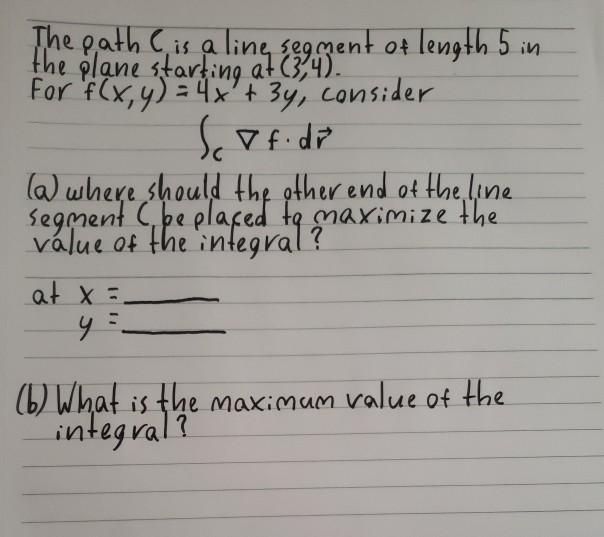 The path C is a line segment of length 5 in
the plane starting at (3,4).
For f(x,y) = 4x + 3y, consider
∫c ∇f · dr⃗
(a) where should the other end of the line
segment C be placed to maximize the
value of the integral?
at x = ____
y = ____
(b) What is the maximum value of the
integral?